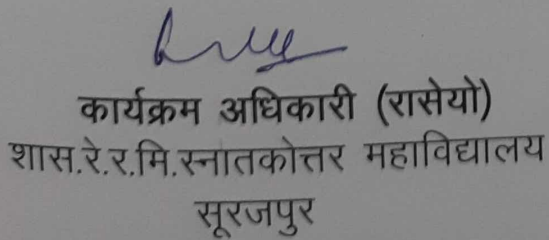 कार्यक्रम अधिकारी (रासेयो)
शास.रे.र.मि.स्नातकोत्तर महाविद्यालय
सूरजपुर